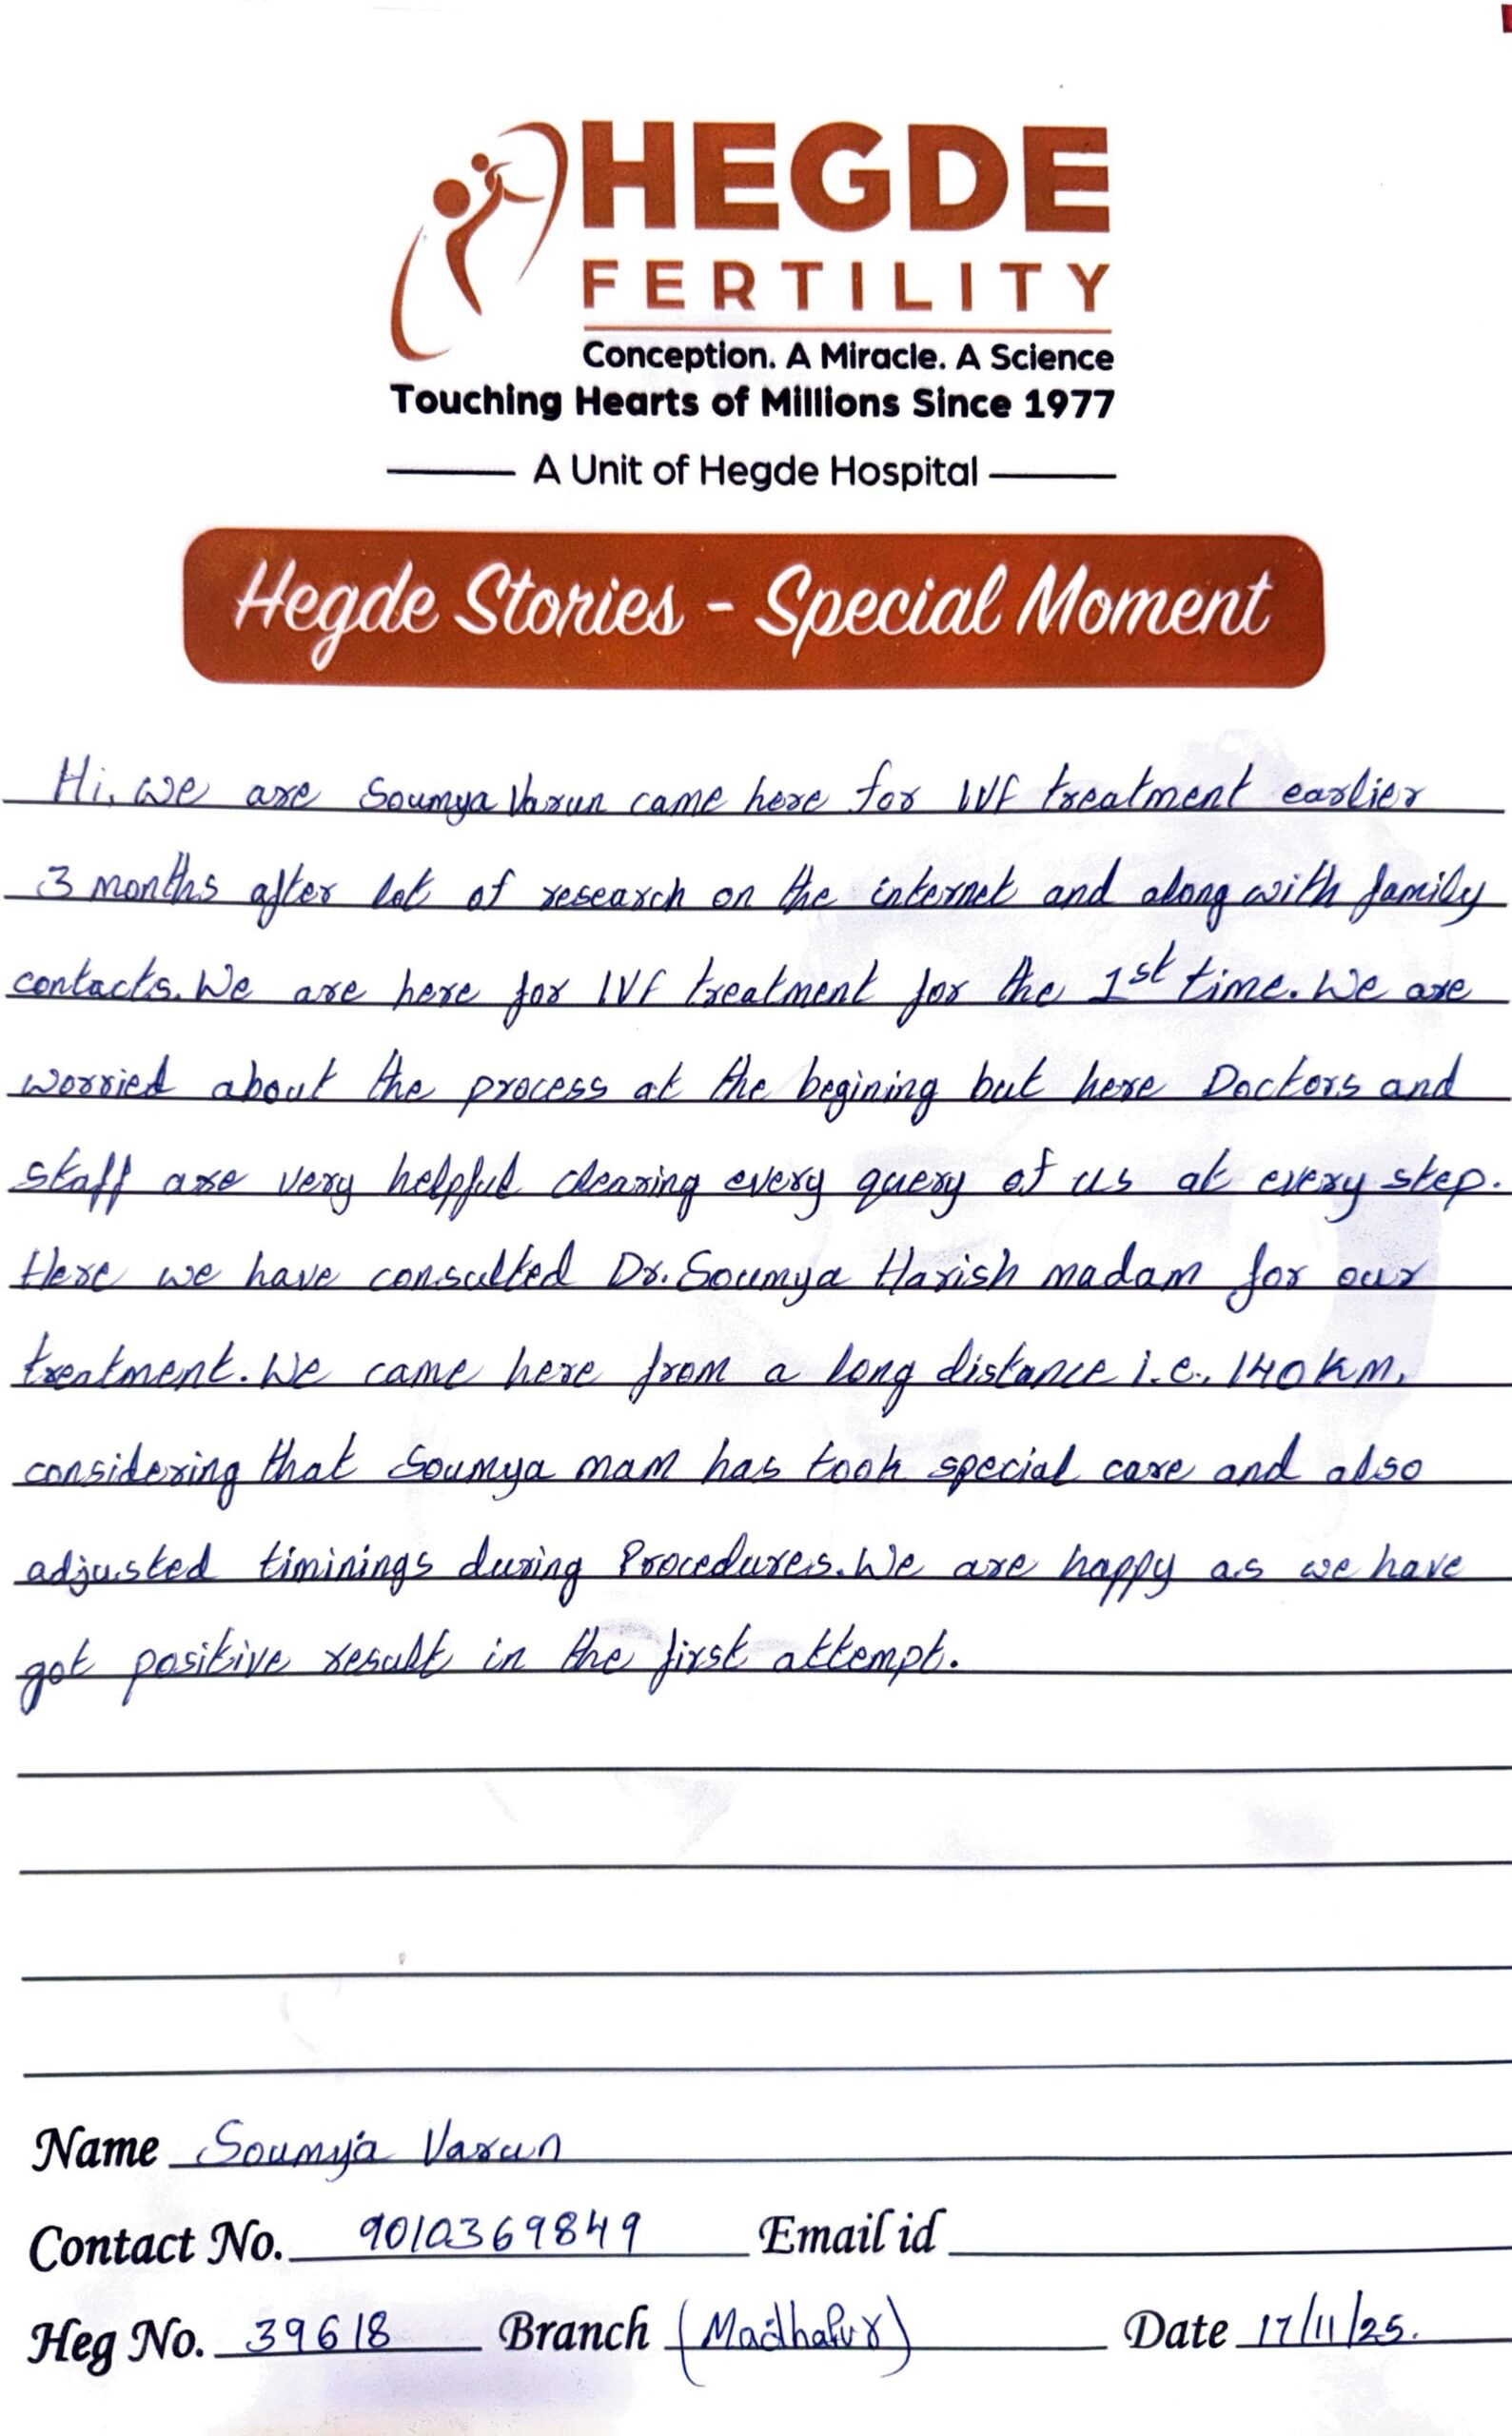 HEGDE
FERTILITY
Conception. A Miracle. A Science
Touching Hearts of Millions Since 1977
A Unit of Hegde Hospital
Hegde Stories - Special Moment
Hi, we are Soumya Varun came here for IVF treatment earlier
3 months after lot of research on the internet and along with family
contacts. We are here for IVF treatment for the 1st time. We are
worried about the process at the begining but here Doctors and
staff are very helpful clearing every query of us at every step.
Here we have consulted Dr. Soumya Harish madam for our
treatment. We came here from a long distance i.e., 140 km,
considering that Soumya mam has took special care and also
adjusted timinings during Procedures. We are happy as we have
got positive result in the first attempt.
Name Soumya Varun
Contact No. 9010369849 Email id
Heg No. 39618 Branch (Madhapur) Date 17/11/25.